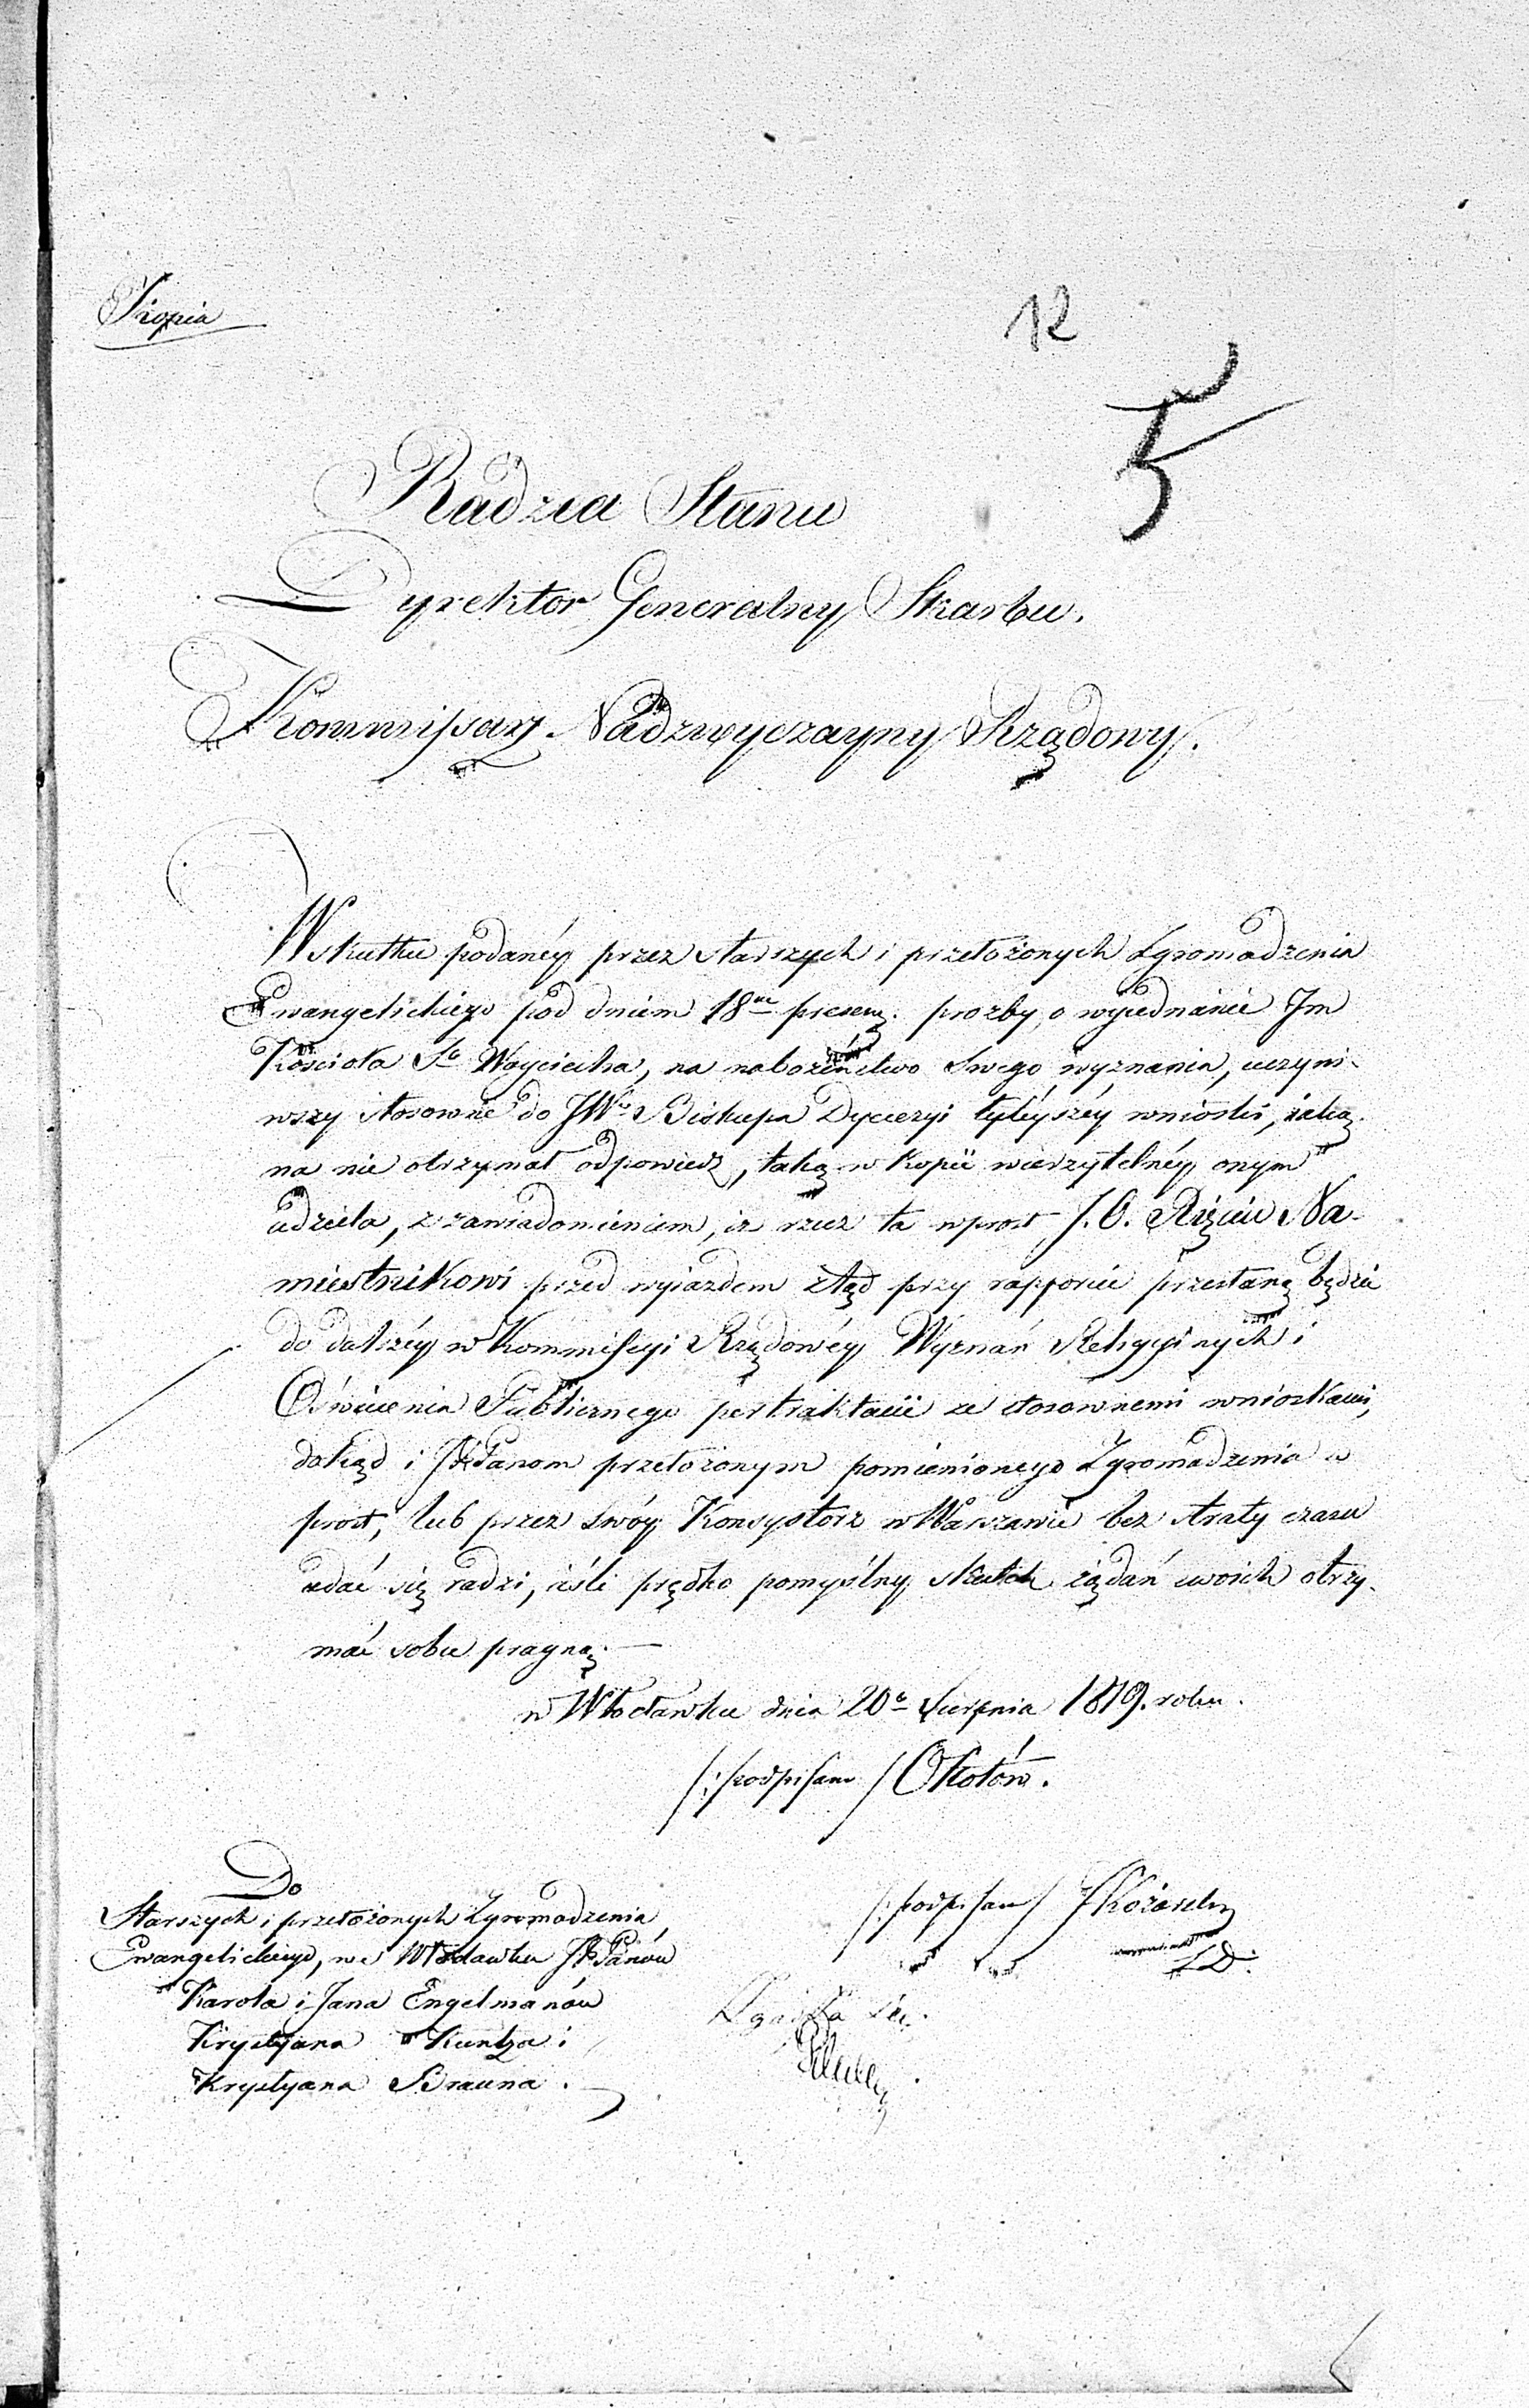 Kopia
12
5
Radzca Stanu
Dyrektor Generalny Skarbu.
Kommissarz Nadzwyczayny Rządowy.
W skutku podanéy przez starszych i przełożonych Zgromadzenia
Ewangelickiego pod dniem 18m presen. prozby, o wyiednanie Im
Kościoła Sgo Woyciecha, na nabożeństwo swego wyznania, uczyni-
wszy stosowne do JWo Biskupa Dyecezyi tuteyszéy wnioski, iaką
na nie otrzymał odpowiedz, taką w kopii wierzytelnéy onym
udziela, z zawiadomieniem, iż rzecz ta wprost J. O. Xięciu Na-
miestnikowi przed wyiazdem ztąd przy rapporcie przesłaną będzie
do dalszéy w Kommissyi Rządowéy Wyznań Religyinych i
Oświecenia Publicznego pertraktacii ze stosownemi wnioskami,
dokąd i JPPanom przełożonym pomienionego Zgromadzenia w
prost, lub przez swóy Konsystorz w Warszawie bez straty czasu
udać się radzi, ieśli prędko pomyślny skutek żądań swoich otrzy-
mać sobie pragną.
w Włocławku dnia 20o Sierpnia 1819. roku.
/: podpisano / Okołów.
Do
Starszych i przełożonych Zgromadzenia
Ewangelickiego, we Włocławku JPPanów
Karola i Jana Engelmanów
Krystyana Kuntza i
Krystyana Brauna.
/: podpisano /
Zgodno